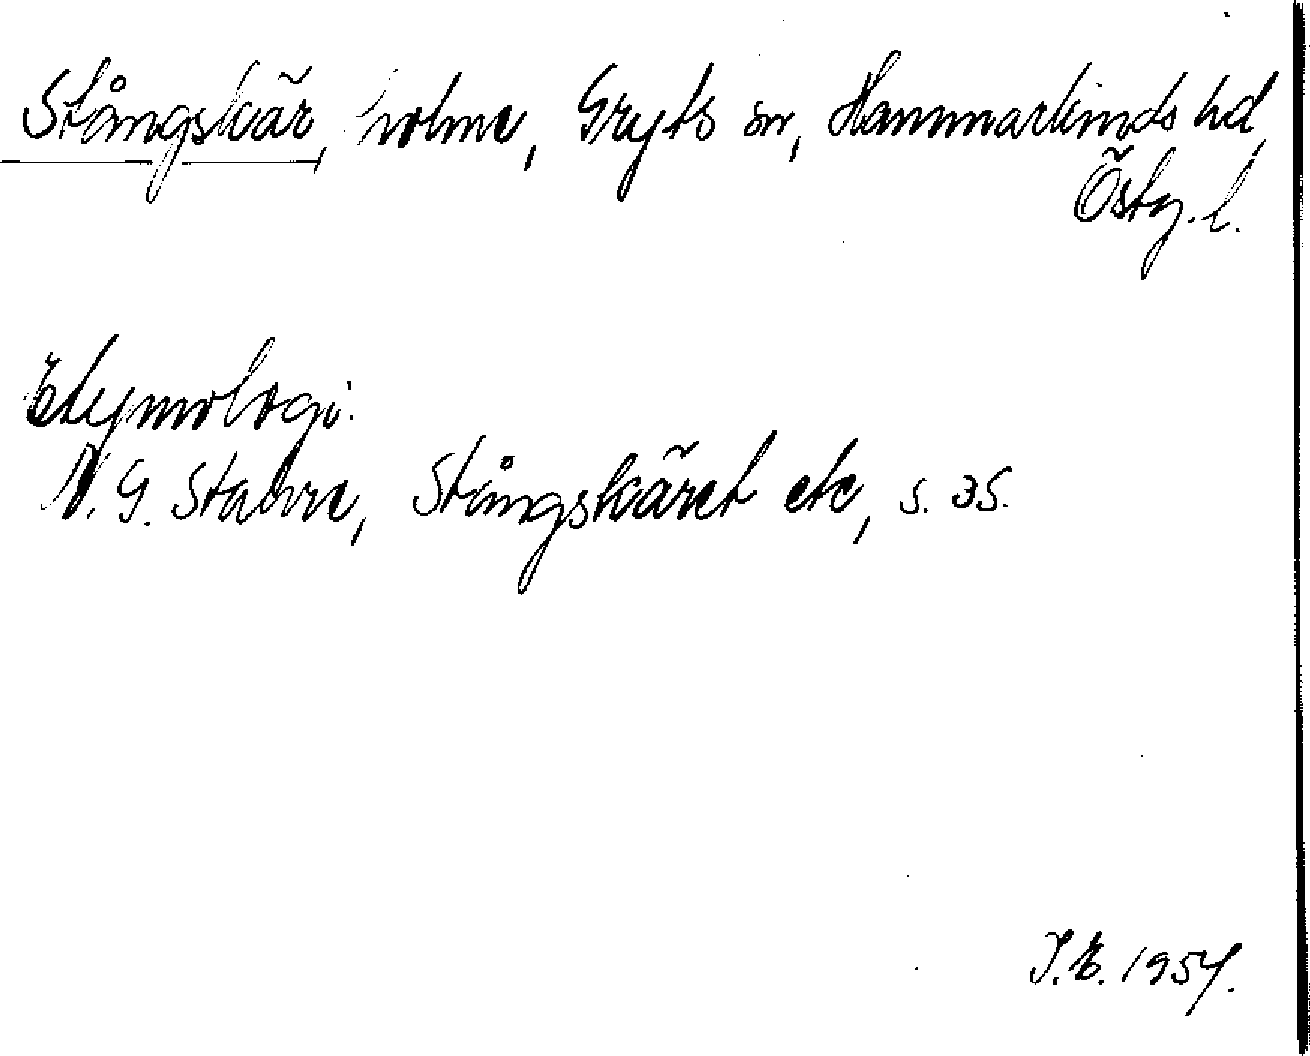 Stångskär, holme, Gryts sn, Hammarkinds hd,
Östg. l.
Etymologi:
N. G. Stahre, Stångskäret etc, s. 35.
J. E. 1957.